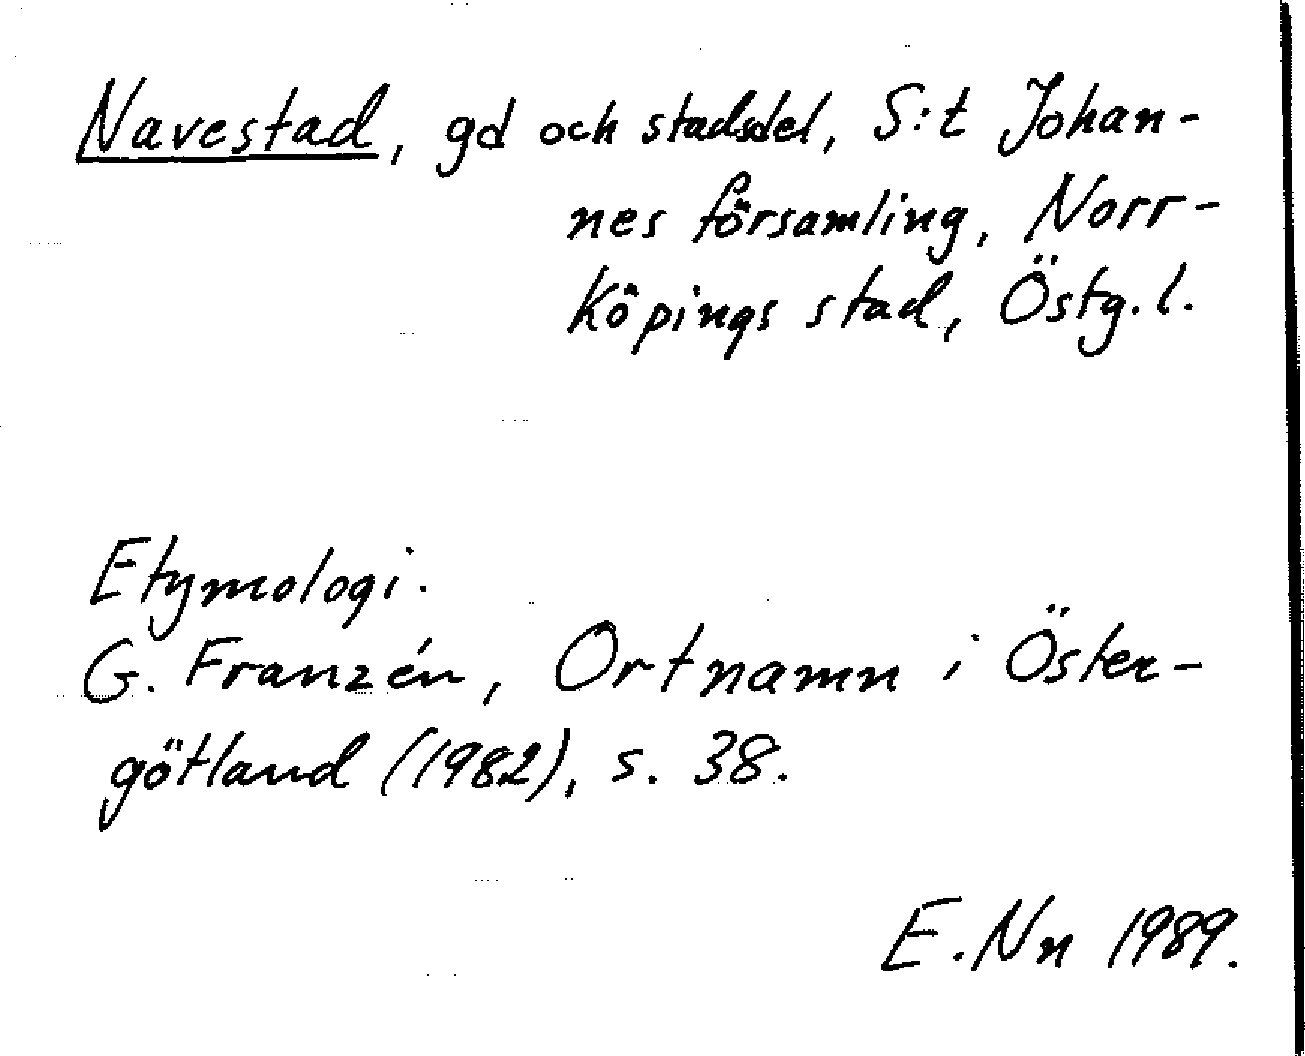 Navestad, gd och stadsdel, S:t Johan-
nes församling, Norr-
köpings stad, Östg.l.
Etymologi.
G. Franzén, Ortnamn i Öster-
götland (1982), s. 38.
E.Nn 1989.